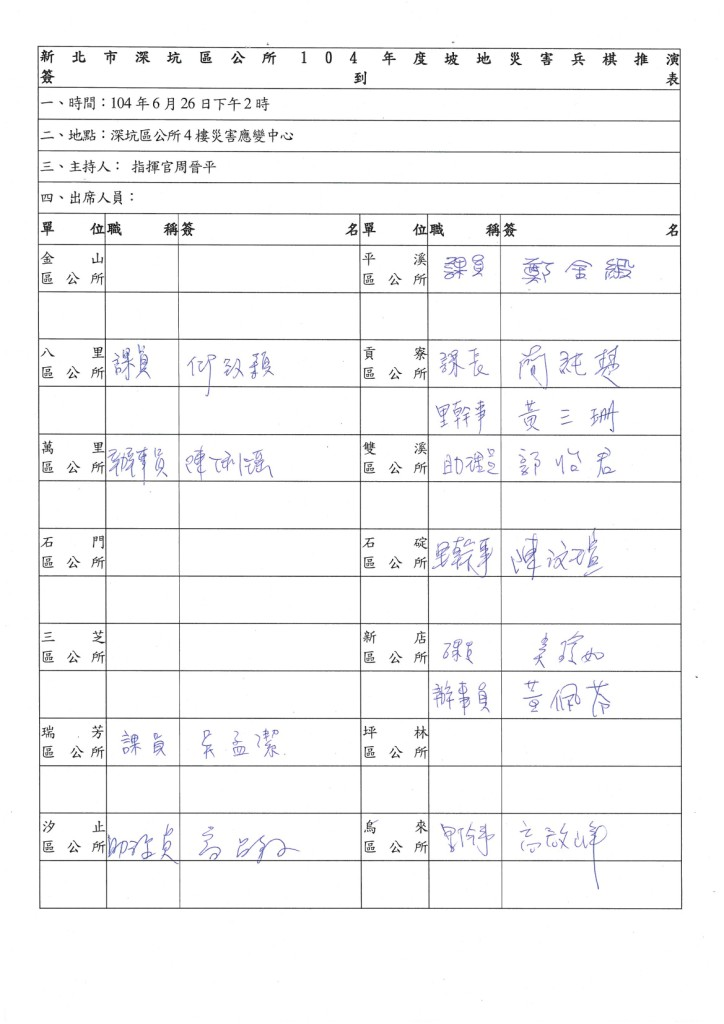 新北市深坑區公所104年度坡地災害兵棋推演
簽到表
一、時間：104年6月26日下午2時
二、地點：深坑區公所4樓災害應變中心
三、主持人： 指揮官周晉平
四、出席人員：
單位 職稱 簽名 單位 職稱 簽名
金山 平溪
區公所 區公所 課員 鄭金緞
八里 貢寮
區公所 課員 區公所 課長 簡
里幹事 黃三珊
萬里 雙溪
區公所 辦事員 陳 區公所 助理員 郭怡君
石門 石碇
區公所 區公所 里幹事 陳汶瑄
三芝 新店
區公所 區公所 課員
辦事員 黃佩苓
瑞芳 坪林
區公所 課員 吳孟潔 區公所
汐止 烏來
區公所 助理員 高 區公所 里幹事 高